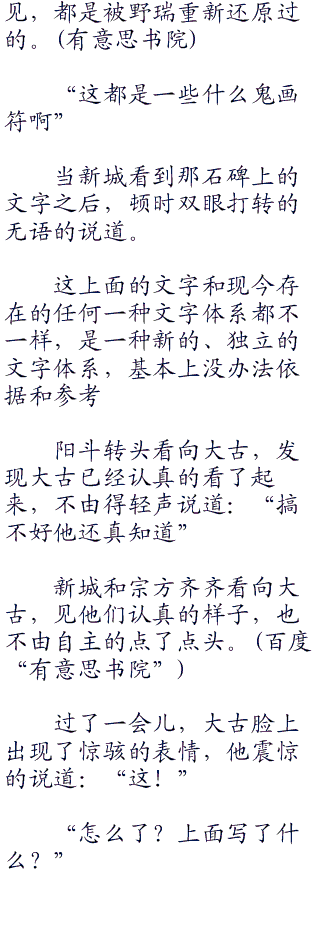 见，都是被野瑞重新还原过
的。(有意思书院)
“这都是一些什么鬼画
符啊”
当新城看到那石碑上的
文字之后，顿时双眼打转的
无语的说道。
这上面的文字和现今存
在的任何一种文字体系都不
一样，是一种新的、独立的
文字体系，基本上没办法依
据和参考
阳斗转头看向大古，发
现大古已经认真的看了起
来，不由得轻声说道：“搞
不好他还真知道”
新城和宗方齐齐看向大
古，见他们认真的样子，也
不由自主的点了点头。(百度
“有意思书院”)
过了一会儿，大古脸上
出现了惊骇的表情，他震惊
的说道：“这！”
“怎么了？上面写了什
么？”